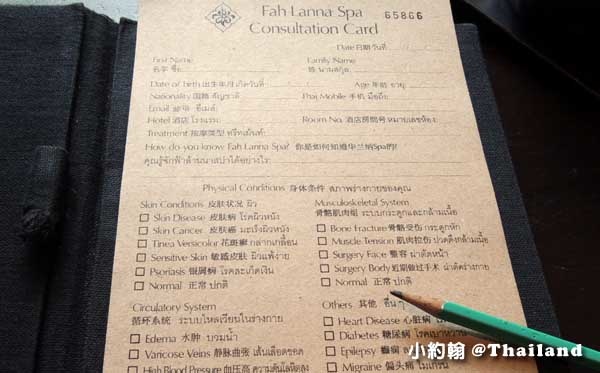 Fah Lanna Spa
65866
Consultation Card
Date 日期 วันที่
First Name
名字 ชื่อ
Family Name
姓 นามสกุล
Date of birth 出生年月 เกิดวันที่
Age 年龄 อายุ
Nationality 国籍 สัญชาติ
Thai Mobile 手机 มือถือ
Email 邮件 อีเมล์
Hotel 酒店 โรงแรม
Room No. 酒店房間号 หมายเลขห้อง
Treatment 按摩类型 ทรีทเม้นท์
How do you know Fah Lanna Spa? 你是如何知道华兰纳Spa的?
คุณรู้จักฟ้าล้านนาสปาได้อย่างไร
Physical Conditions 身体条件 สภาพร่างกายของคุณ
Skin Conditions 皮肤状况 ผิว
Skin Disease 皮肤病 โรคผิวหนัง
Skin Cancer 皮肤癌 มะเร็งผิวหนัง
Tinea Versicolor 花斑癣 กลากเกลื้อน
Sensitive Skin 敏感皮肤 ผิวแพ้ง่าย
Psoriasis 银屑病 โรคสะเก็ดเงิน
Normal 正常 ปกติ
Musculoskeletal System
骨骼肌肉组 ระบบกระดูกและกล้ามเนื้อ
Bone Fracture 骨骼受伤 กระดูกหัก
Muscle Tension 肌肉拉伤 ปวดตึงกล้ามเนื้อ
Surgery Face 整容 ผ่าตัดหน้า
Surgery Body 近期做过手术 ผ่าตัดร่างกาย
Normal 正常 ปกติ
Circulatory System
循环系统 ระบบไหลเวียนในร่างกาย
Edema 水肿 บวมน้ำ
Varicose Veins 静脉曲张 เส้นเลือดขอด
High Blood Pressure 血压高 ความดันโลหิตสูง
Others 其他 อื่นๆ
Heart Disease 心脏病
Diabetes 糖尿病 โรคเบาหวาน
Epilepsy 癫痫
Migraine 偏头痛 ไมเกรน
小約翰 @Thailand